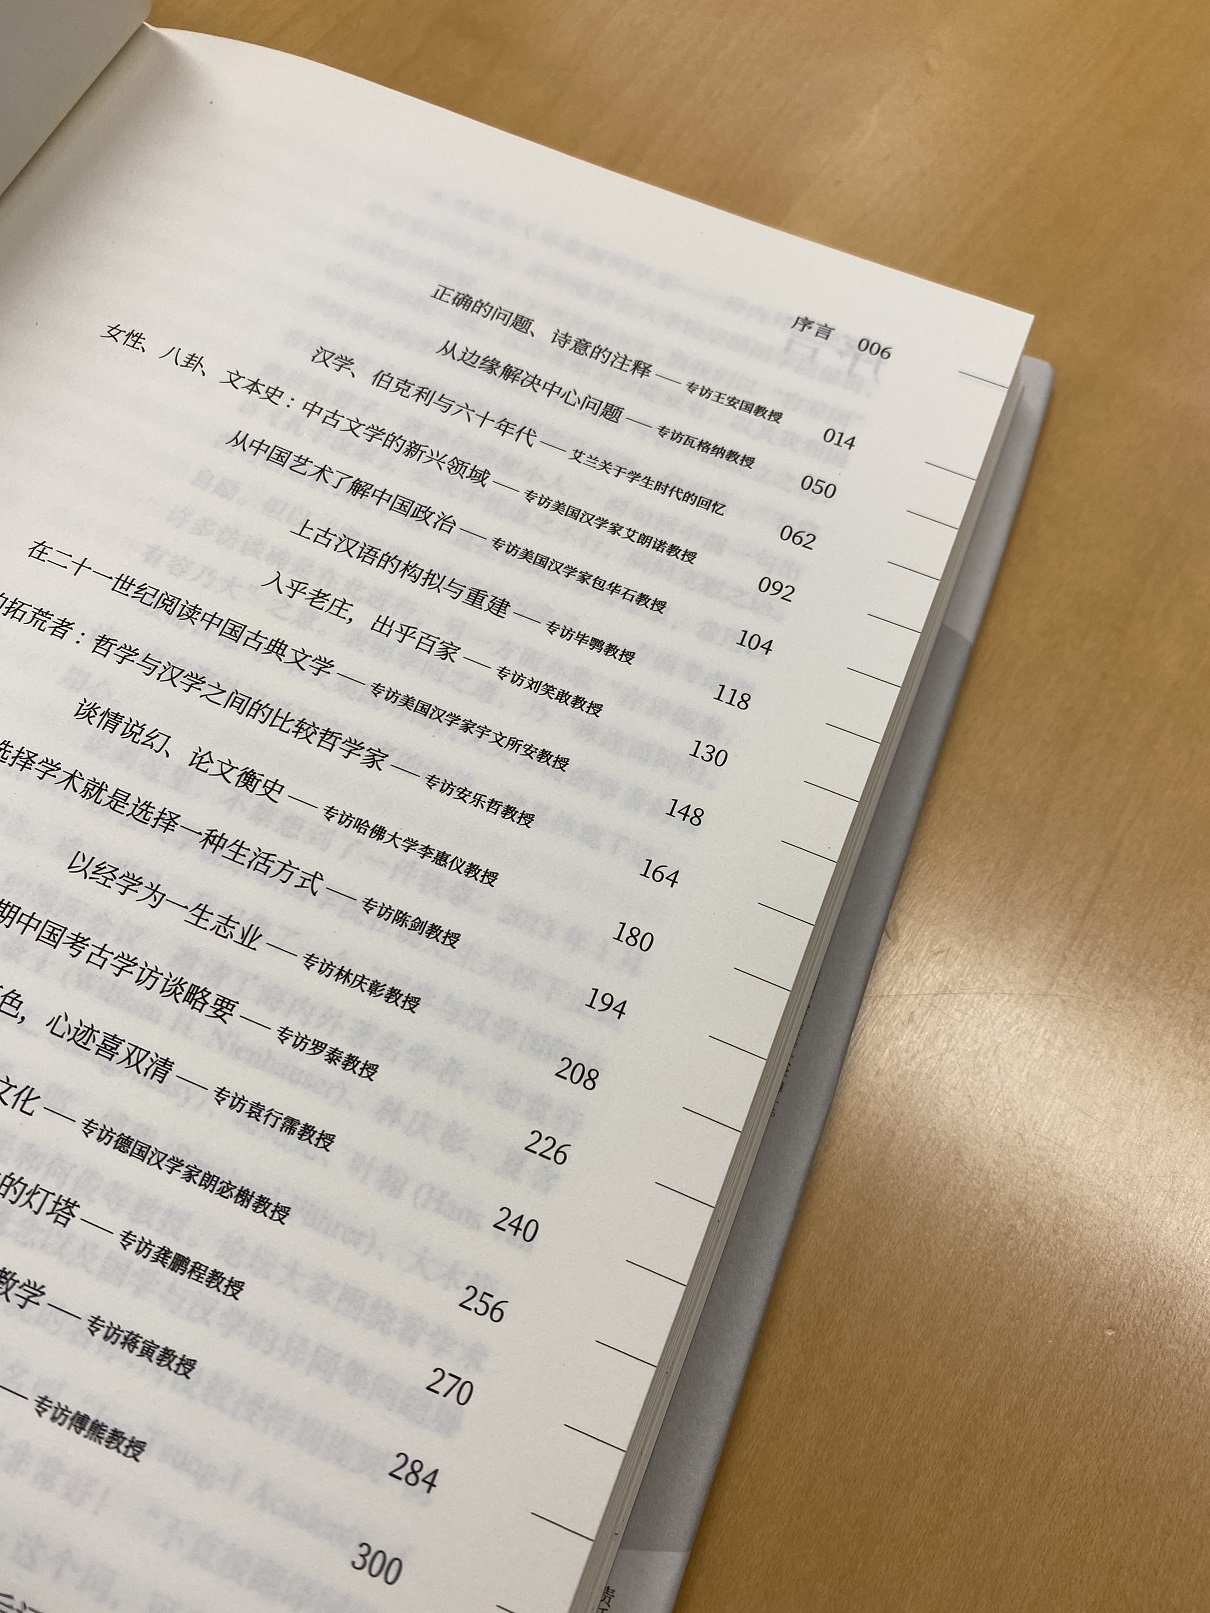 序言 006
正确的问题、诗意的注释 — 专访王安国教授 014
从边缘解决中心问题 — 专访瓦格纳教授 050
汉学、伯克利与六十年代 — 艾兰关于学生时代的回忆 062
女性、八卦、文本史：中古文学的新兴领域 — 专访美国汉学家艾朗诺教授 092
从中国艺术了解中国政治 — 专访美国汉学家包华石教授 104
上古汉语的构拟与重建 — 专访毕鹗教授 118
入乎老庄，出乎百家 — 专访刘笑敢教授 130
在二十一世纪阅读中国古典文学 — 专访美国汉学家宇文所安教授 148
的拓荒者：哲学与汉学之间的比较哲学家 — 专访安乐哲教授 164
谈情说幻、论文衡史 — 专访哈佛大学李惠仪教授 180
选择学术就是选择一种生活方式 — 专访陈剑教授 194
以经学为一生志业 — 专访林庆彰教授 208
期中国考古学访谈略要 — 专访罗泰教授 226
色，心迹喜双清 — 专访袁行霈教授 240
文化 — 专访德国汉学家朗宓榭教授 256
的灯塔 — 专访龚鹏程教授 270
教学 — 专访蒋寅教授 284
— 专访傅熊教授 300